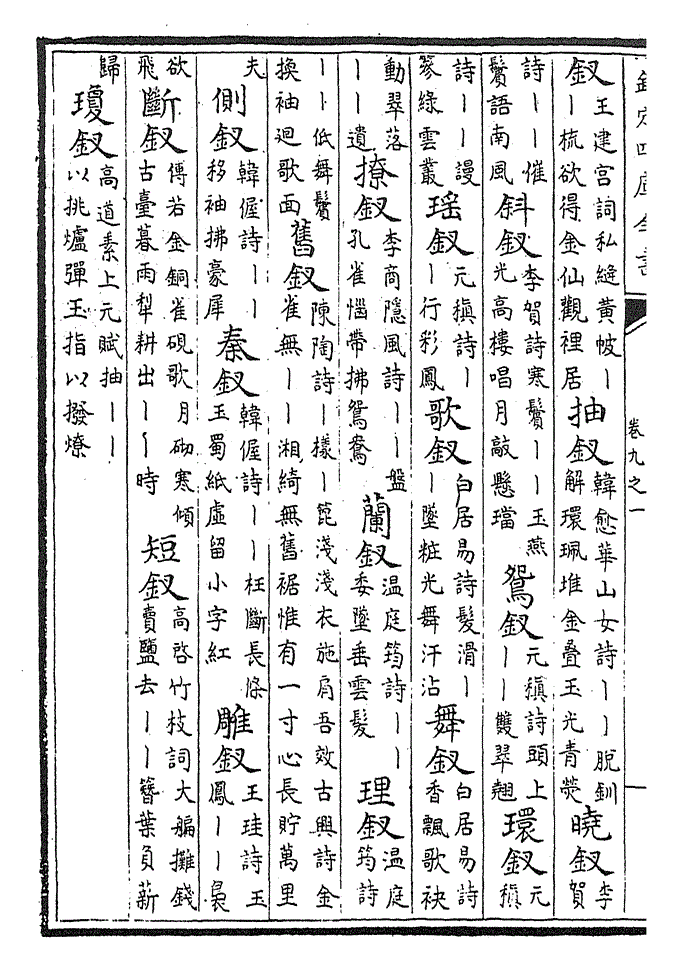 欽定四庫全書 卷九之一
釵王建宮詞私縫黄帔丨丨梳欲得金仙觀裡居 抽釵韓愈華山女詩丨丨脱釧解環珮堆金疊玉光青熒 曉釵李賀
詩丨丨催鬢語南風 斜釵李賀詩寒鬢丨丨玉燕光高樓唱月敲懸璫 鴛釵元稹詩頭上丨丨雙翠翹 環釵元稹
詩丨丨謾篸綠雲叢 瑶釵元稹詩丨丨行彩鳳 歌釵白居易詩髮滑丨丨墜粧光舞汗沾 舞釵白居易詩香飄歌袂
動翠落丨丨遺 撩釵李商隱風詩丨丨盤孔雀惱帶拂鴛鴦 蘭釵温庭筠詩丨丨委墜垂雲髮 理釵温庭筠詩
丨丨低舞鬢換袖迴歌面 舊釵陳陶詩丨様丨篦淺淺衣施肩吾效古興詩金雀無丨丨湘綺無舊裾惟有一寸心長貯萬里
夫 側釵韓偓詩丨丨移袖拂豪犀 秦釵韓偓詩丨丨枉斷長條玉蜀紙虛留小字紅 雕釵王珪詩玉鳳丨丨裊
欲飛 斷釵傅若金銅雀硯歌月砌寒傾古臺暮雨犁耕出丨丨時 短釵高啓竹枝詞大艑攤錢賣鹽去丨丨簪葉負薪
歸 瓊釵高道素上元賦抽丨丨以挑爐彈玉指以撥燎